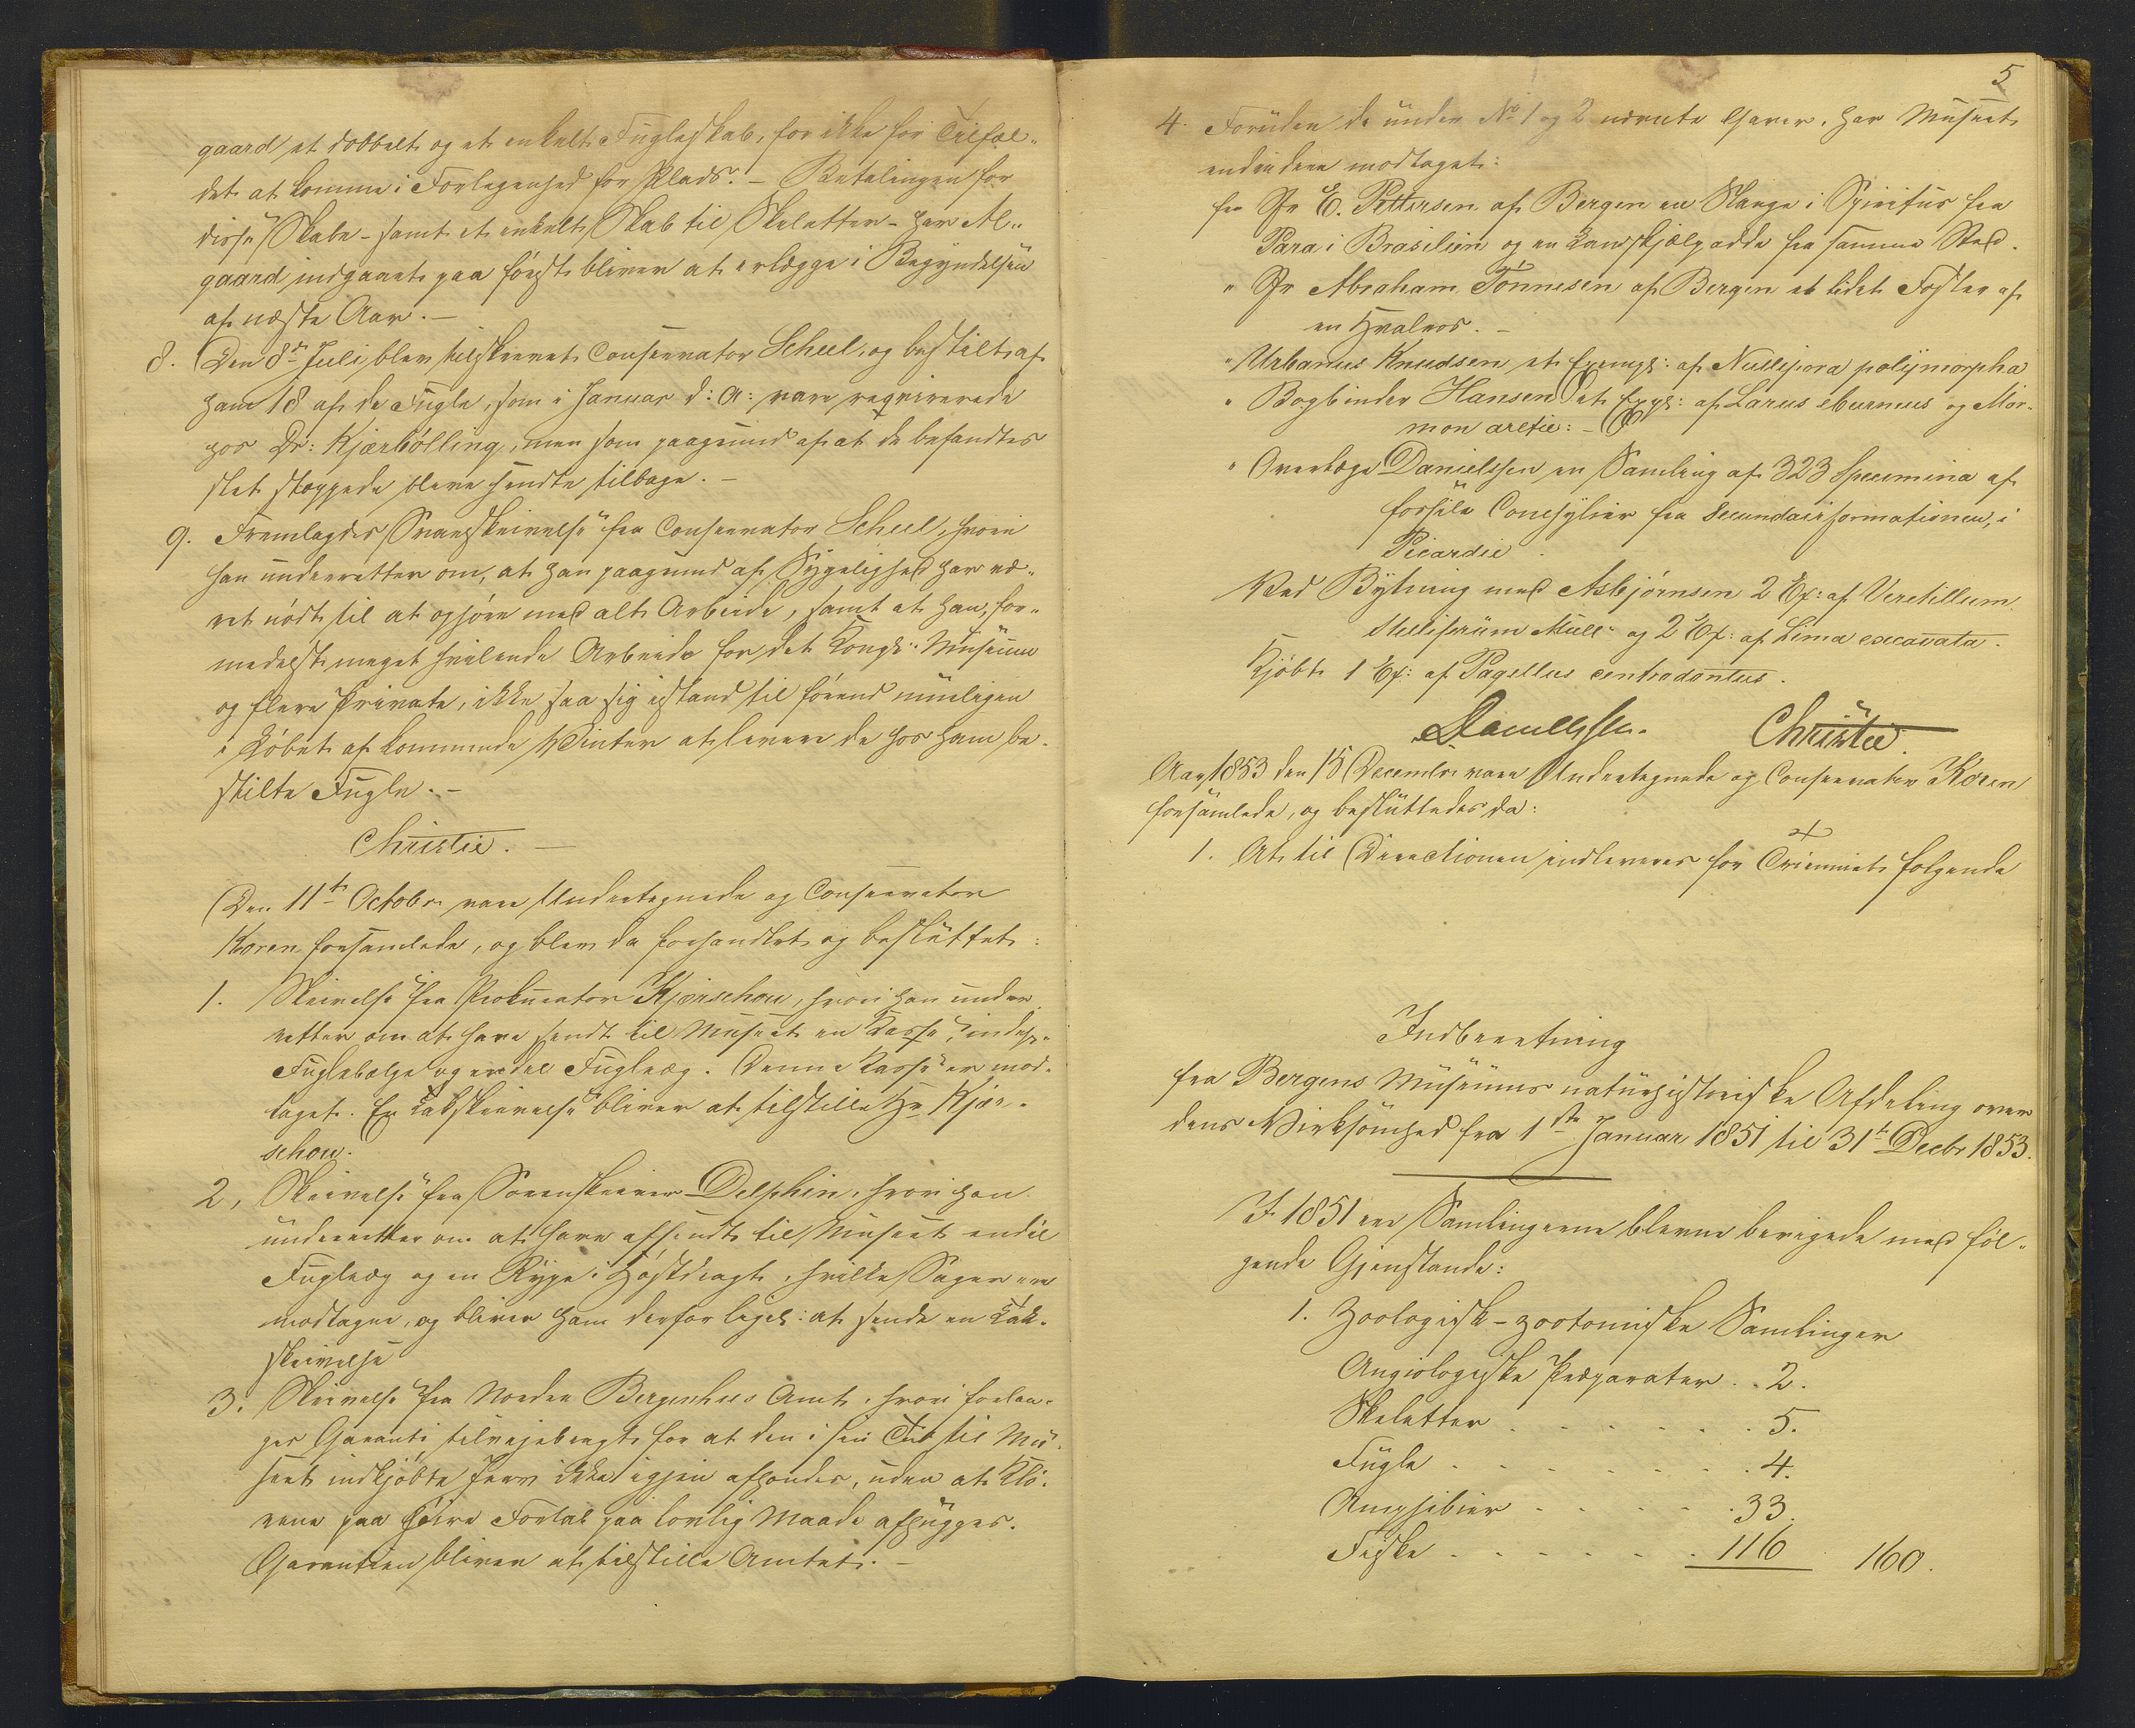 gaard et dobbelt og et enkelt Fugleskab, for ikke for Tilfæl-
det at komme i Forlegenhed for Plads. - Betalingen for
disse Skabe - samt et enkelt Skab til Skeletter - har Al-
gaard indgaaet paa først bliver at erlægge i Begyndelsen
af næste Aar. -
8. Den 8de Juli blev tilskrevet Conservator Scheel, og bestilt af
ham 18 af de Fugle, som i Januar d: A: vare reqvirerede
hos Dr: Kjærbölling, men som paagrund af at de befandtes
slet stoppede bleve sendte tilbage. -
9. Fremlagdes Svarskrivelse fra Conservator Scheel, hvori
han underretter om, at han paagrund af Sygelighed har væ-
ret nödt til at ophöre med alt Arbeide, samt at han, for-
medelst meget hvilende Arbeide for det Kongl: Museum
og flere Private, ikke saa sig istand til förend muligen
i Löbet af kommende Winter at levere de hos ham be-
stilte Fugle. -
Christie. -
Den 11te October vare Undertegnede og Conservator
Koren forsamlede, og blev da forhandlet og besluttet:
1. Skrivelse fra Prokurator Kjerschow, hvori han under
retter om at have sendt til Museet en Kasse, indeh:
Fuglebælge og endel Fugleæg. Denne Kasse er mod-
taget. En Takskrivelse bliver at tilstille Hr Kjer-
schow.
2, Skrivelse fra Sorenskriver Delphin, hvori han
underretter om at have afsendt til Museet endel
Fugleæg og en Rype i Höstdragt, hvilke Sager ere
modtagne, og bliver ham derfor ligel: at sende en Tak-
skrivelse
3. Skrivelse fra Nordre Bergenhus Amt, hvori forlan-
ges Garanti tilveiebragt for at den i sin Tid til Mu-
seet indkjöbte Jerv ikke igjen afhændes, uden at Klö-
vene paa höire Forlab paa lovlig Maade afhugges.
Garantien bliver at tilstille Amtet. -
5
4. Foruden de under No 1 og 2 nævnte Gaver, har Museet
endvidere modtaget:
fra Hr E. Pettersen af Bergen en Slange i Spiritus fra
Para i Brasilien og en Landskjælpadde fra samme Sted.
" Hr Abraham Tönnesen af Bergen et lidet Foster af
en Hvalros. -
" Urbanus Knudsen et Exempl: af Nullipora polymorpha
" Bogbinder Hansen et Expl: af Larus eburneus og Mor-
mon arctic: -
" Overlæge Danielssen en Samling af 323 Specimina af
fossile Conchylier fra Secundairformationen, i
Picardie.
Ved Bytning med Asbjörnsen 2 Ex: af Veretillum
Stelliferum Müll: og 2 Ex: af Lima excavata.
Kjöbt 1 Ex: af Pagellus centrodontus.
Danielssen. Christie.
Aar 1853 den 15 Decembr vare Undertegnede og Conservator Koren
forsamlede, og besluttedes da:
1. At til Directionen indleveres for Trienniet folgende
Indberetning
fra Bergens Museums naturhistoriske Afdeling over
dens Virksomhed fra 1ste Januar 1851 til 31te Decbr 1853.
I 1851 ere Samlingerne blevne berigede med föl-
gende Gjenstande:
1. Zoologisk-zootomiske Samlinger
Angiologiske Præparater . . 2.
Skeletter . . . . . . . 5.
Fugle . . . . . . . . 4.
Amphibier . . . . . 33.
Fiske . . . . . . 116 160.